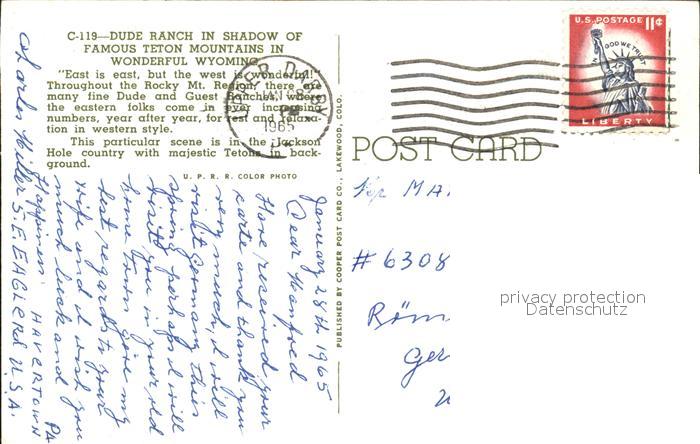 C-119—DUDE RANCH IN SHADOW OF
FAMOUS TETON MOUNTAINS IN
WONDERFUL WYOMING
"East is east, but the west is wonderful!"
Throughout the Rocky Mt. Region, there are
many fine Dude and Guest Ranches, where
the eastern folks come in ever increasing
numbers, year after year, for rest and relaxa-
tion in western style.
This particular scene is in the Jackson
Hole country with majestic Tetons in back-
ground.
U. P. R. R. COLOR PHOTO
1965
PUBLISHED BY COOPER POST CARD CO., LAKEWOOD, COLO.
U.S. POSTAGE 11¢
IN GOD WE TRUST
LIBERTY
POST CARD
January 28th 1965
Dear Manfred
Have received your
karte and thank you
very much, I will
visit Germany this
spring perhaps I will
visit you in your old
home town give my
best regards to your
wife and I wish you
much luck and
Happiness.
Charles
HAVERTOWN PA
U.S.A.
MA.
# 6308
Röm
Ger
privacy protection
Datenschutz